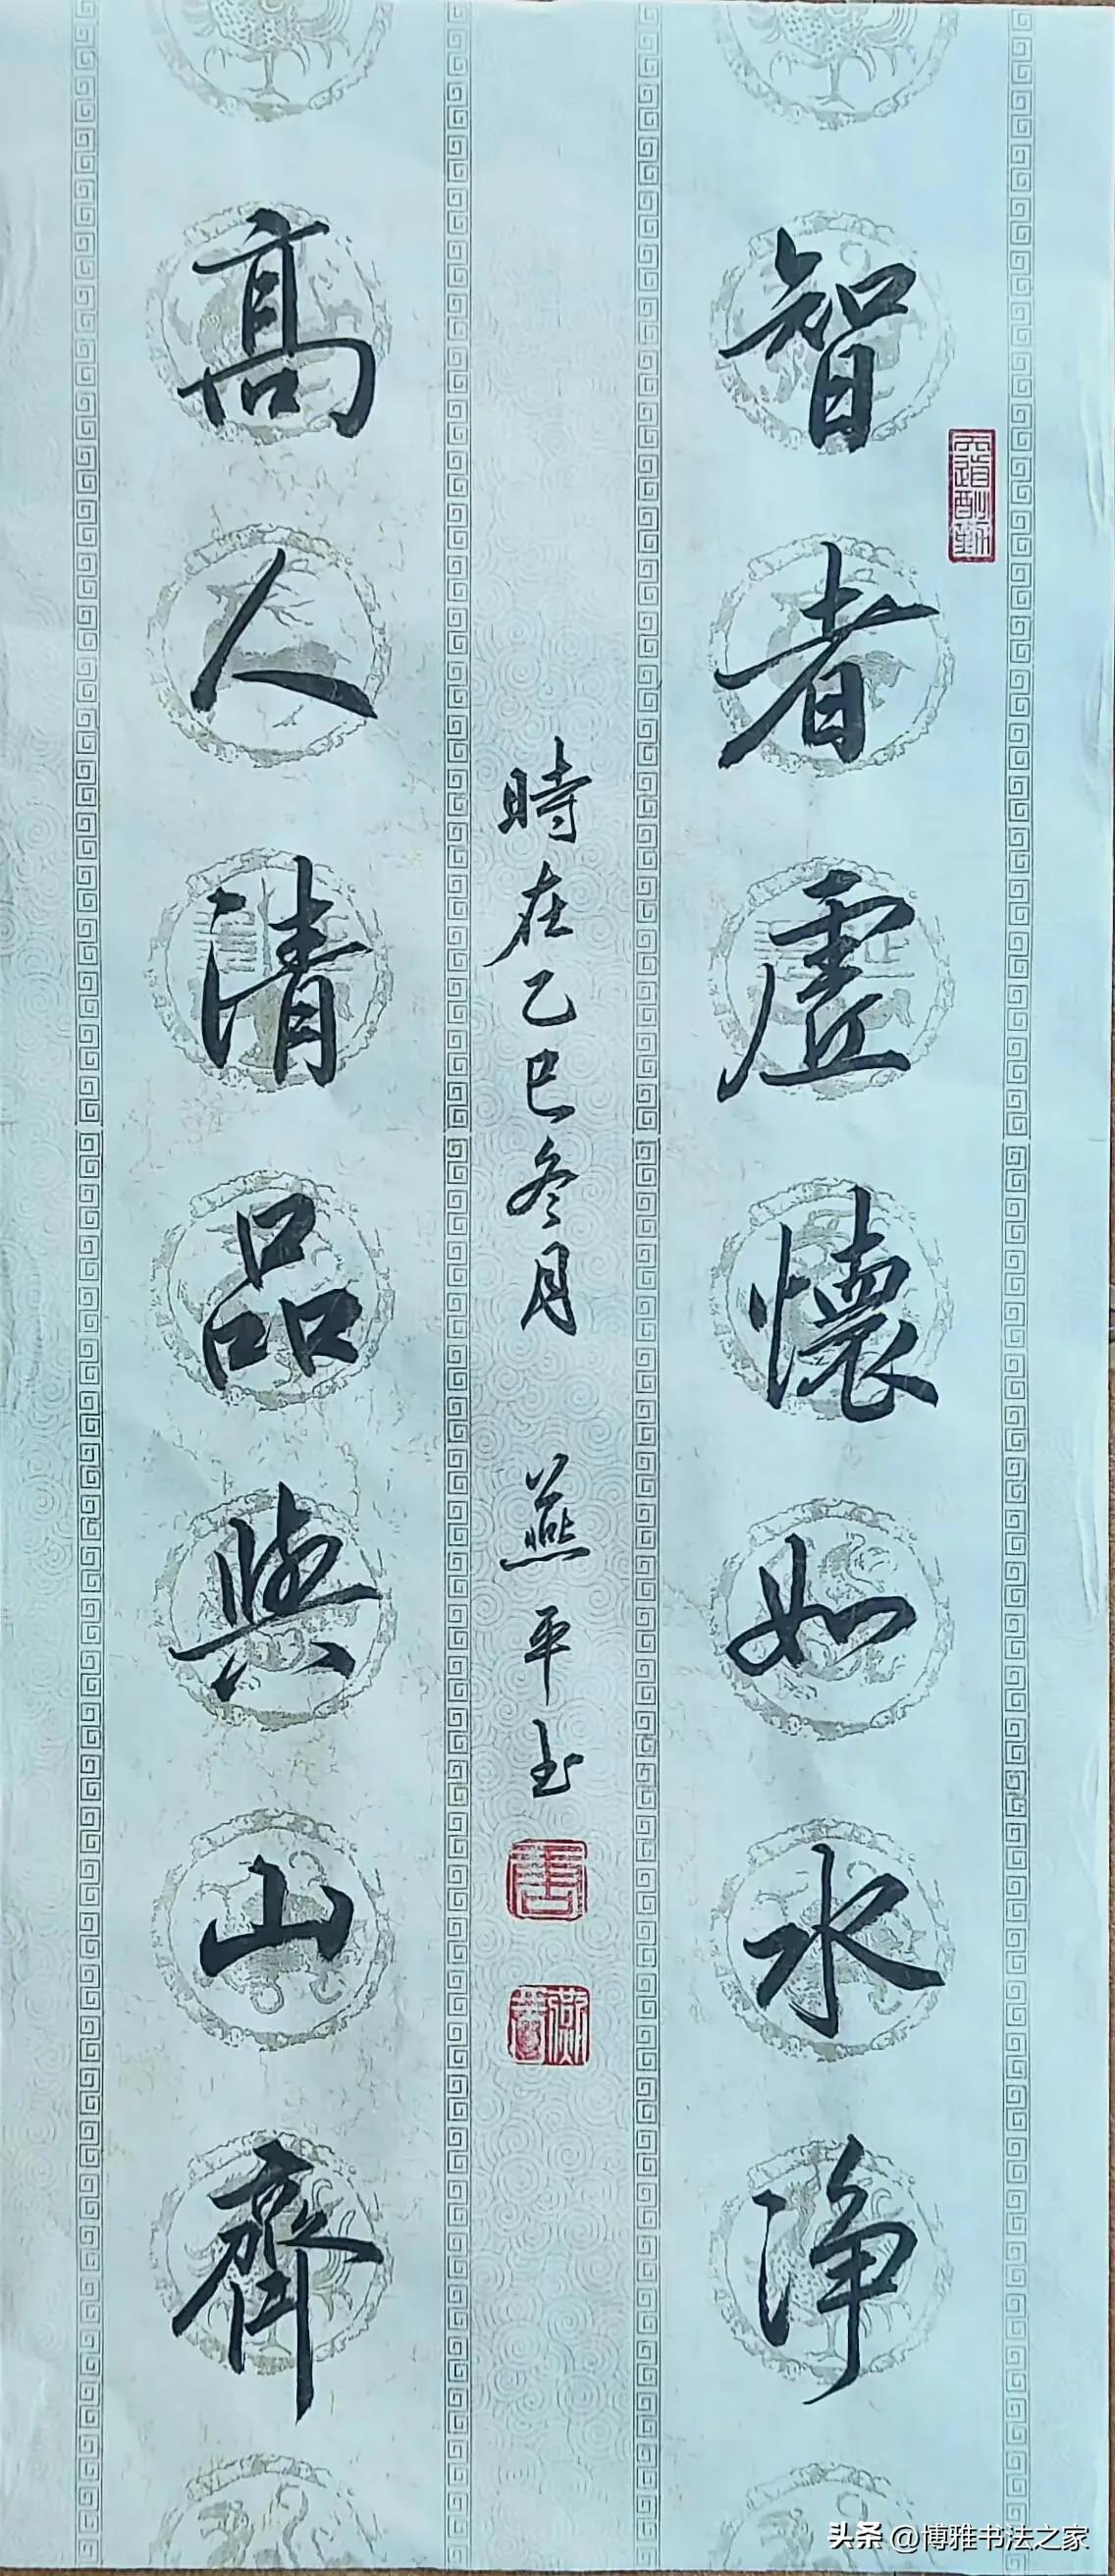 智者虛懷如水净
高人清品與山齊
時在乙巳冬月 燕平书
天道酬勤
头条 @博雅书法之家